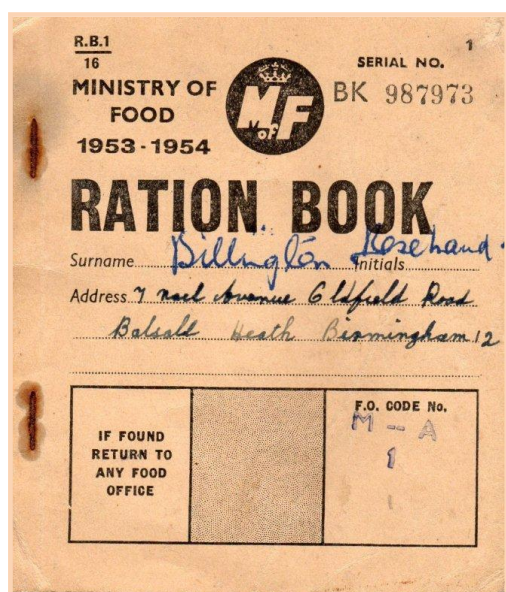 R.B.1
16
1
MINISTRY OF
FOOD
1953-1954
M of F
SERIAL NO.
BK 987973
RATION BOOK
Surname Billington Initials
Address 7 Avenue Oldfield Road
Balsald Heath Birmingham 12
IF FOUND
RETURN TO
ANY FOOD
OFFICE
F.O. CODE No.
M - A
1
1